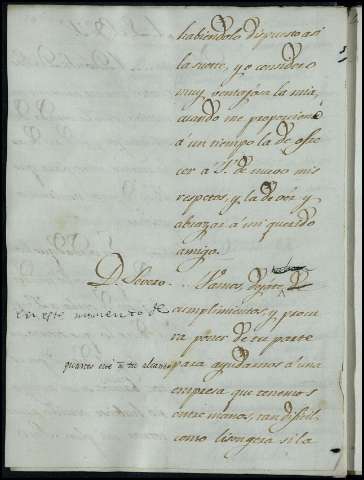 habiendolo dispuesto asi
la suerte, y yo considero
muy ventajosa la mia,
cuando me proporciona
á un tiempo la de ofre
cer á V. de nuevo mis
respetos, y la de ver y
abrazar á mi querido
amigo.
D. Severo. Vamos dejate de
en este momento de
cumplimientos, y procu
ra poner de tu parte
quantos esté á tu alcance
para ayudarnos á una
empresa que tenemos
entre manos, tan dificil,
como lisongera si la